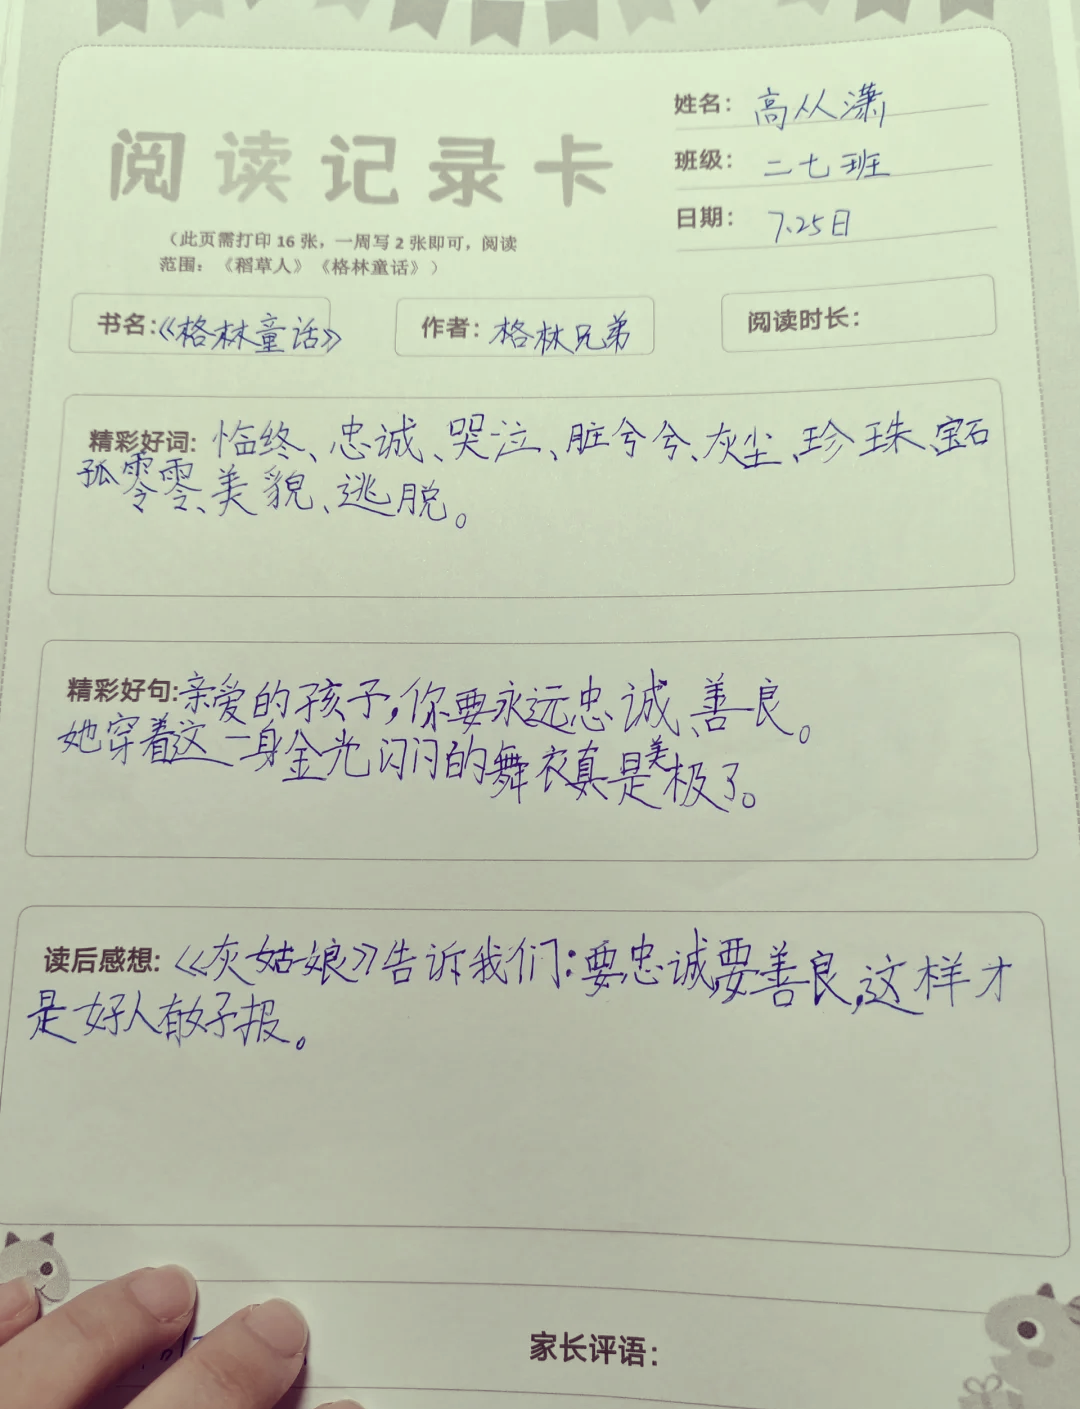 姓名：高从潇
班级：二七班
日期：7.25日
阅读记录卡
（此页需打印 16 张，一周写 2 张即可，阅读
范围：《稻草人》《格林童话》）
书名：《格林童话》
作者：格林兄弟
阅读时长：
精彩好词：临终、忠诚、哭泣、脏兮兮、灰尘、珍珠、宝石
孤零零、美貌、逃脱。
精彩好句：亲爱的孩子，你要永远忠诚、善良。
她穿着这一身金光闪闪的舞衣真是美极了。
读后感想：《灰姑娘》告诉我们：要忠诚，要善良，这样才
是好人有好报。
家长评语：